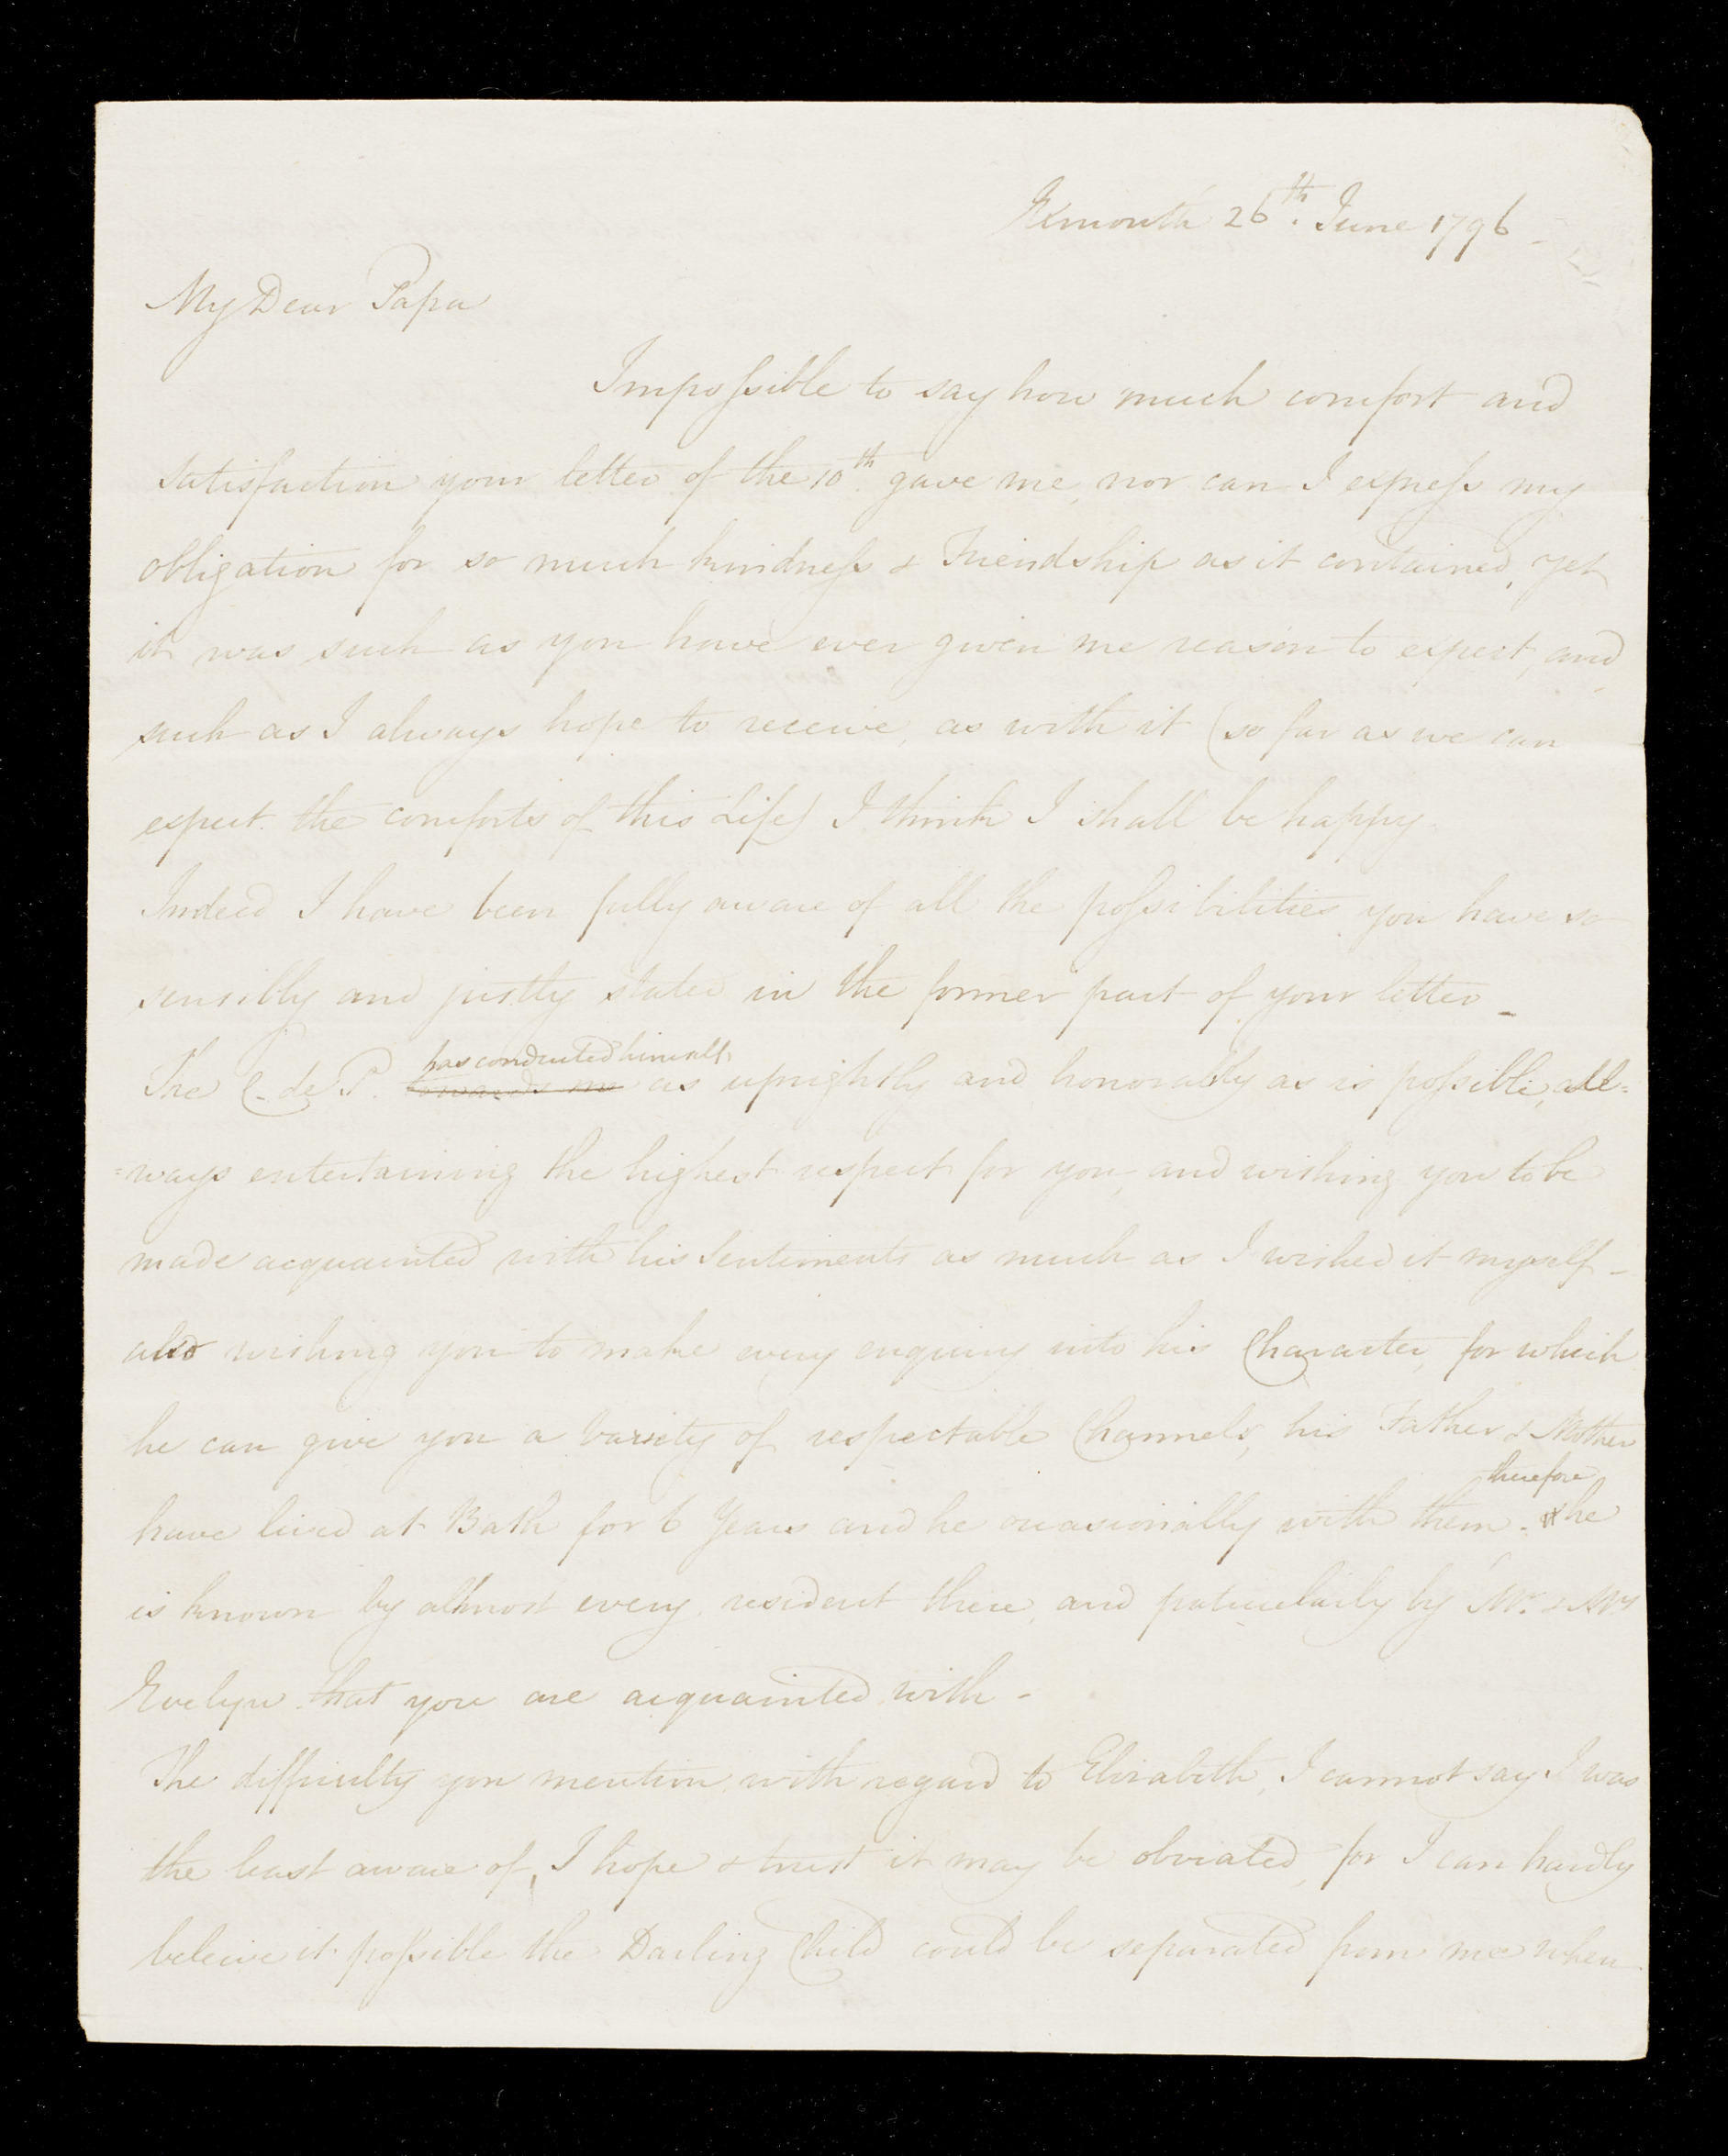 Exmouth 26th. June 1796 -
My Dear Papa
Impossible to say how much comfort and
satisfaction your letter of the 10th. gave me, nor can I express my
obligation for so much kindness & Friendship as it contained, yet
it was such as you have ever given me reason to expect, and
such as I always hope to receive, as with it (so far as we can
expect the comforts of this Life) I think I shall be happy.
Indeed I have been fully aware of all the possibilities you have so
sensibly and justly stated in the former part of your letter -
has conducted himself
The C. de P. towards me as uprightly and honorably as is possible, all=
=ways entertaining the highest respect for you, and wishing you to be
made acquainted with his Sentiments as much as I wished it myself -
also wishing you to make every enquiry into his Character, for which
he can give you a variety of respectable Channels, his Father & Mother
therefore
have lived at Bath for 6 Years and he occasionally with them - he
is known by almost every resident there, and paticularly by Mr. & Mrs
Evelyn that you are acquainted with -
The difficulty you mention with regard to Elizabeth, I cannot say I was
the least aware of, I hope & trust it may be obviated, for I can hardly
beleive it possible the Darling Child could be separated from me when